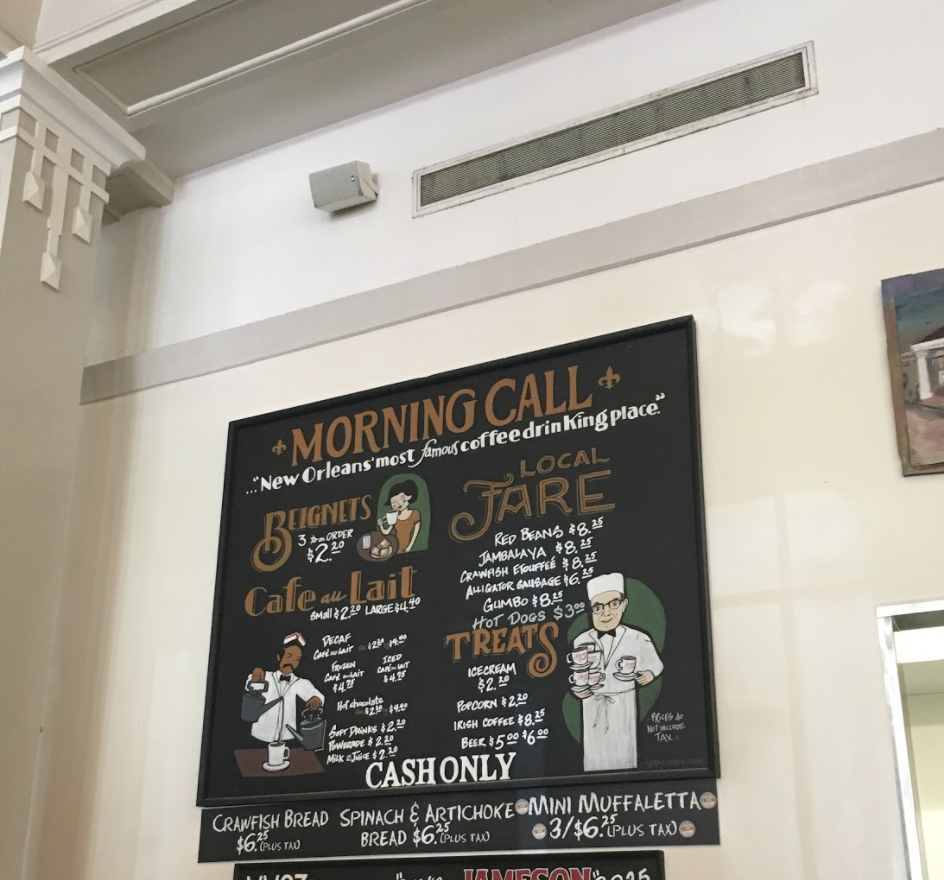 MORNING CALL
..."New Orleans' most famous coffee drinking place."
BEIGNETS
3 to an ORDER
$2.20
Cafe au Lait
Small $2.20 LARGE $4.40
DECAF
Café au LAIT
FROZEN
Café au LAIT
$4.75
ICED
Café au LAIT
$4.75
Hot chocolate
SOFT DRINKS $2.20
POWERADE $2.20
MILK & JUICE $2.20
LOCAL
FARE
RED BEANS $8.25
JAMBALAYA $8.25
CRAWFISH ETOUFFEÉ $8.25
ALLIGATOR SAUSAGE $6.25
GUMBO $8.25
HOT DOGS $3.00
TREATS
ICECREAM
$2.20
POPCORN $2.20
IRISH COFFEE $8.25
BEER $5.00 $6.00
PRICES do
NOT INCLUDE
TAX
CASH ONLY
CRAWFISH BREAD
$6.25 (PLUS TAX)
SPINACH & ARTICHOKE
BREAD $6.25 (PLUS TAX)
MINI MUFFALETTA
3/$6.25 (PLUS TAX)
JAMESON